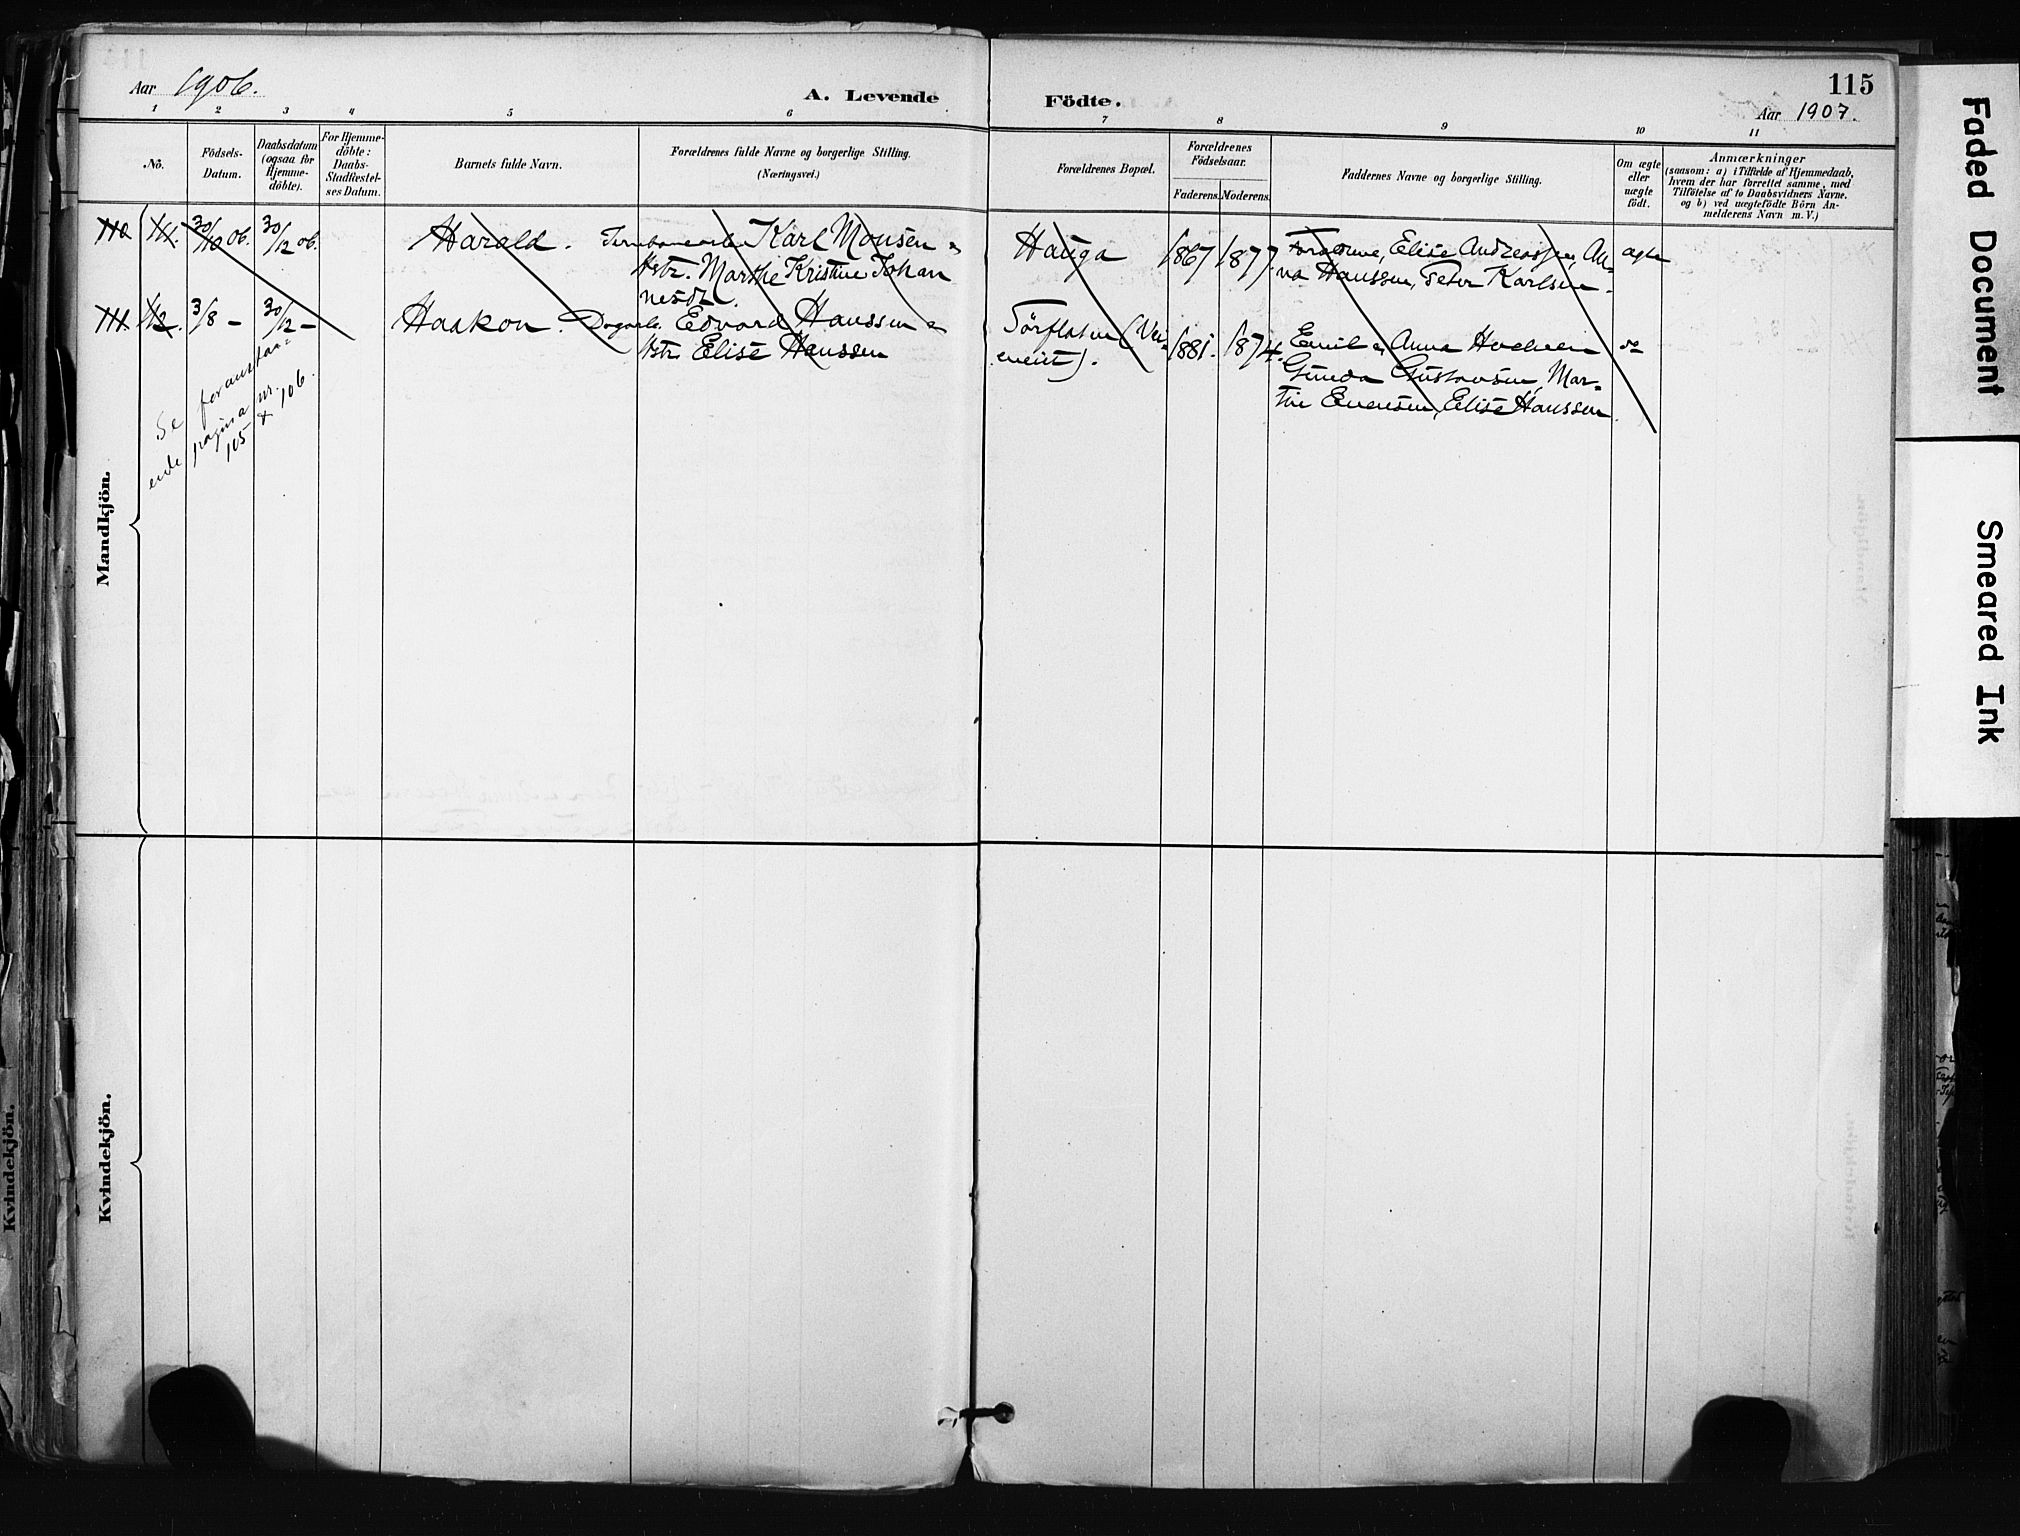 115
Aar 1906.
A. Levende Födte.
Aar 1907.
1 2 3 4 5 6 7 8 9 10 11
No.
Födsels-
Datum.
Daabsdatum
(ogsaa for
Hjemme-
döbte).
For Hjemme-
döbte:
Daabs-
Stadfæstel-
ses Datum.
Barnets fulde Navn.
Forældrenes fulde Navne og borgerlige Stilling.
(Næringsvei.)
Forældrenes Bopæl.
Forældrenes
Födselsaar.
Faderens. Moderens.
Faddernes Navne og borgerlige Stilling.
Om ægte
eller
uægte
födt.
Anmærkninger
(saasom: a) i Tilfælde af Hjemmedaab,
hvem der har forrettet samme, med
Tilföielse af to Daabsvidners Navne.
og b) ved uægtefödte Börn An-
melderens Navn m. V.)
110 111. 30/10 06. 30/12 06. Harald. Karl Monsen &
Hstr. Marthe Kristine Johan
nesdt.
Hauga 1867 1877.
Forældrene, Elise Andreassen, An-
na Hanssen, Peter Karlsen.
ægte
111 112. 3/8 - 30/12 - Haakon. Dagarb. Edvard Hanssen &
Hstr. Elise Hanssen
Törflaten (Vei-
enent).
1881. 1874.
Emil & Anna Hochlein
Gineda Gustavsen, Mar-
tin Evensen, Elise Hanssen.
do
Se foranstaa-
ende pagina nr.
105 & 106.
Mandkjön.
Kvindekjön.
Kvindekjön.
Faded Document
Smeared Ink